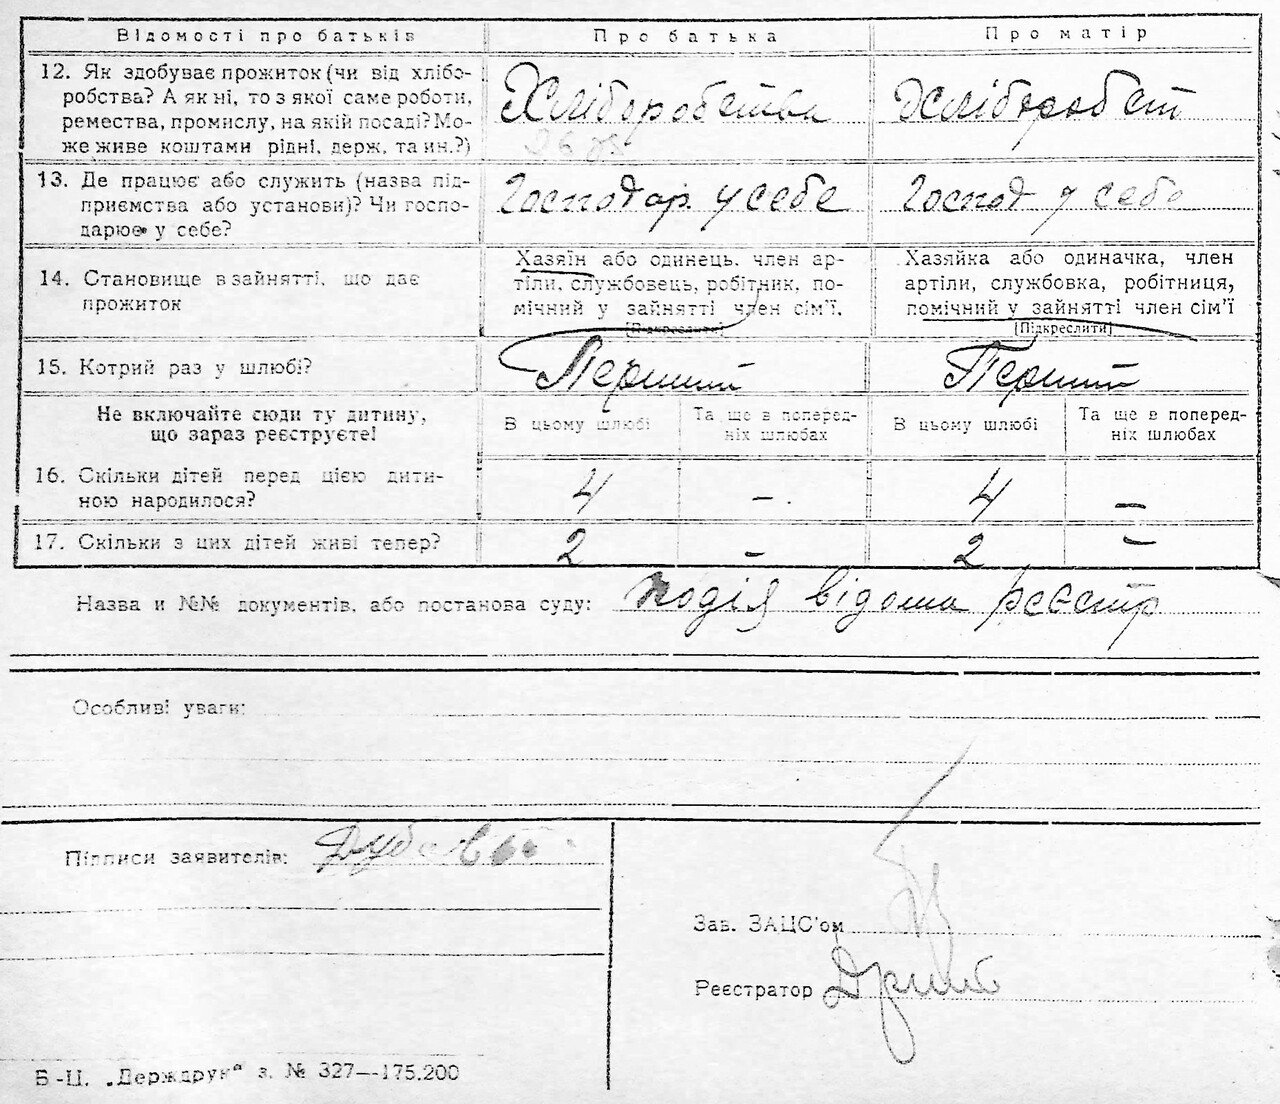 Відомості про батьків Про батька Про матір
12. Як здобуває прожиток (чи від хлібо-
робства? А як ні, то з якої саме роботи,
ремества, промислу, на якій посаді? Мо-
же живе коштами рідні, держ. та ин.?)
Хліборобства Хлібороб ст
13. Де працює або служить (назва під-
приємства або установи)? Чи госпо-
дарює у себе?
Господар. у себе Господ у себе
14. Становище в зайнятті, що дає
прожиток
Хазяїн або одинець, член ар-
тіли, службовець, робітник, по-
мічний у зайнятті член сім'ї.
[Підкреслити]
Хазяйка або одиначка, член
артіли, службовка, робітниця,
помічний у зайнятті член сім'ї
[Підкреслити]
15. Котрий раз у шлюбі? Перший Перший
Не включайте сюди ту дитину,
що зараз реєструєте!
В цьому шлюбі
Та ще в поперед-
ніх шлюбах
В цьому шлюбі
Та ще в поперед-
ніх шлюбах
16. Скільки дітей перед цією дити-
ною народилося?
4 – 4 –
17. Скільки з цих дітей живі тепер? 2 – 2 –
Назва и №№ документів, або постанова суду: подія відома реєстр
Особливі уваги:
Підписи заявителів:
Зав. ЗАЦС'ом
Реєстратор
Б-Ц. „Держдрук" з. № 327—175.200